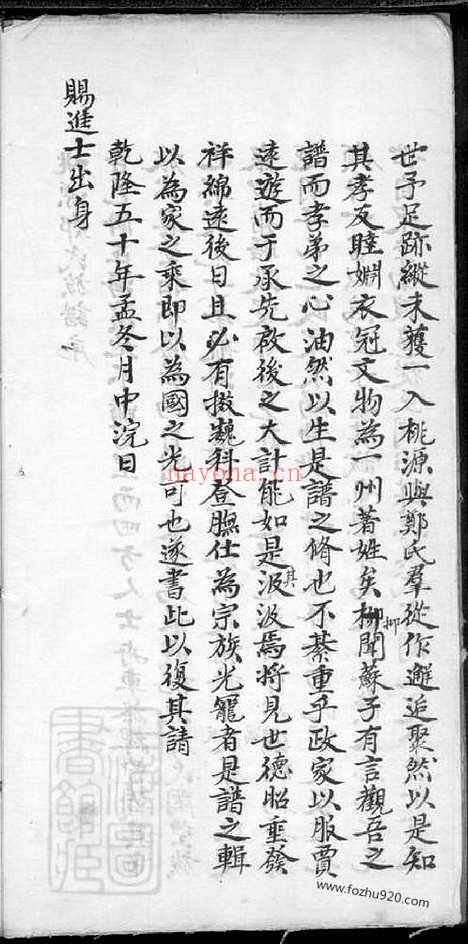 世予足跡縱未獲一入桃源與鄭氏羣從作邂逅聚然以是知
其孝友睦婣衣冠文物為一州著姓矣柳聞蘇子有言觀吾之
抑
譜而孝弟之心油然以生是譜之脩也不綦重乎政家以服賈
遠遊而于承先啟後之大計能如是汲汲焉將見世德昭垂發
其
祥綿遠後日且必有掇巍科登膴仕為宗族光寵者是譜之輯
以為家之乘即以為國之光可也遂書此以復其請
乾隆五十年孟冬月中浣日
賜進士出身
nayona.cn
www.fozhu920.com